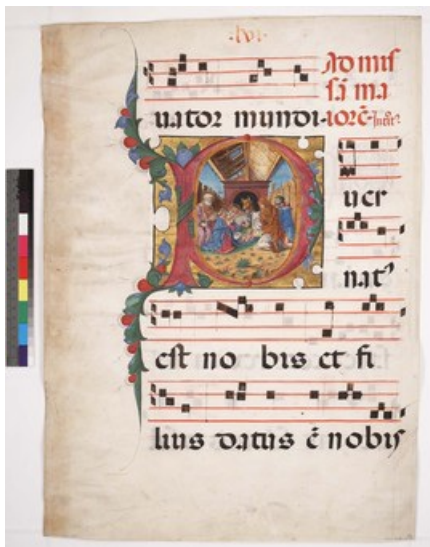 ·lvi·
Ad mis
sã ma
uator mundi· iorẽ·
P
uer
natꝰ
est no bis et fi
lius datus ẽ nobis